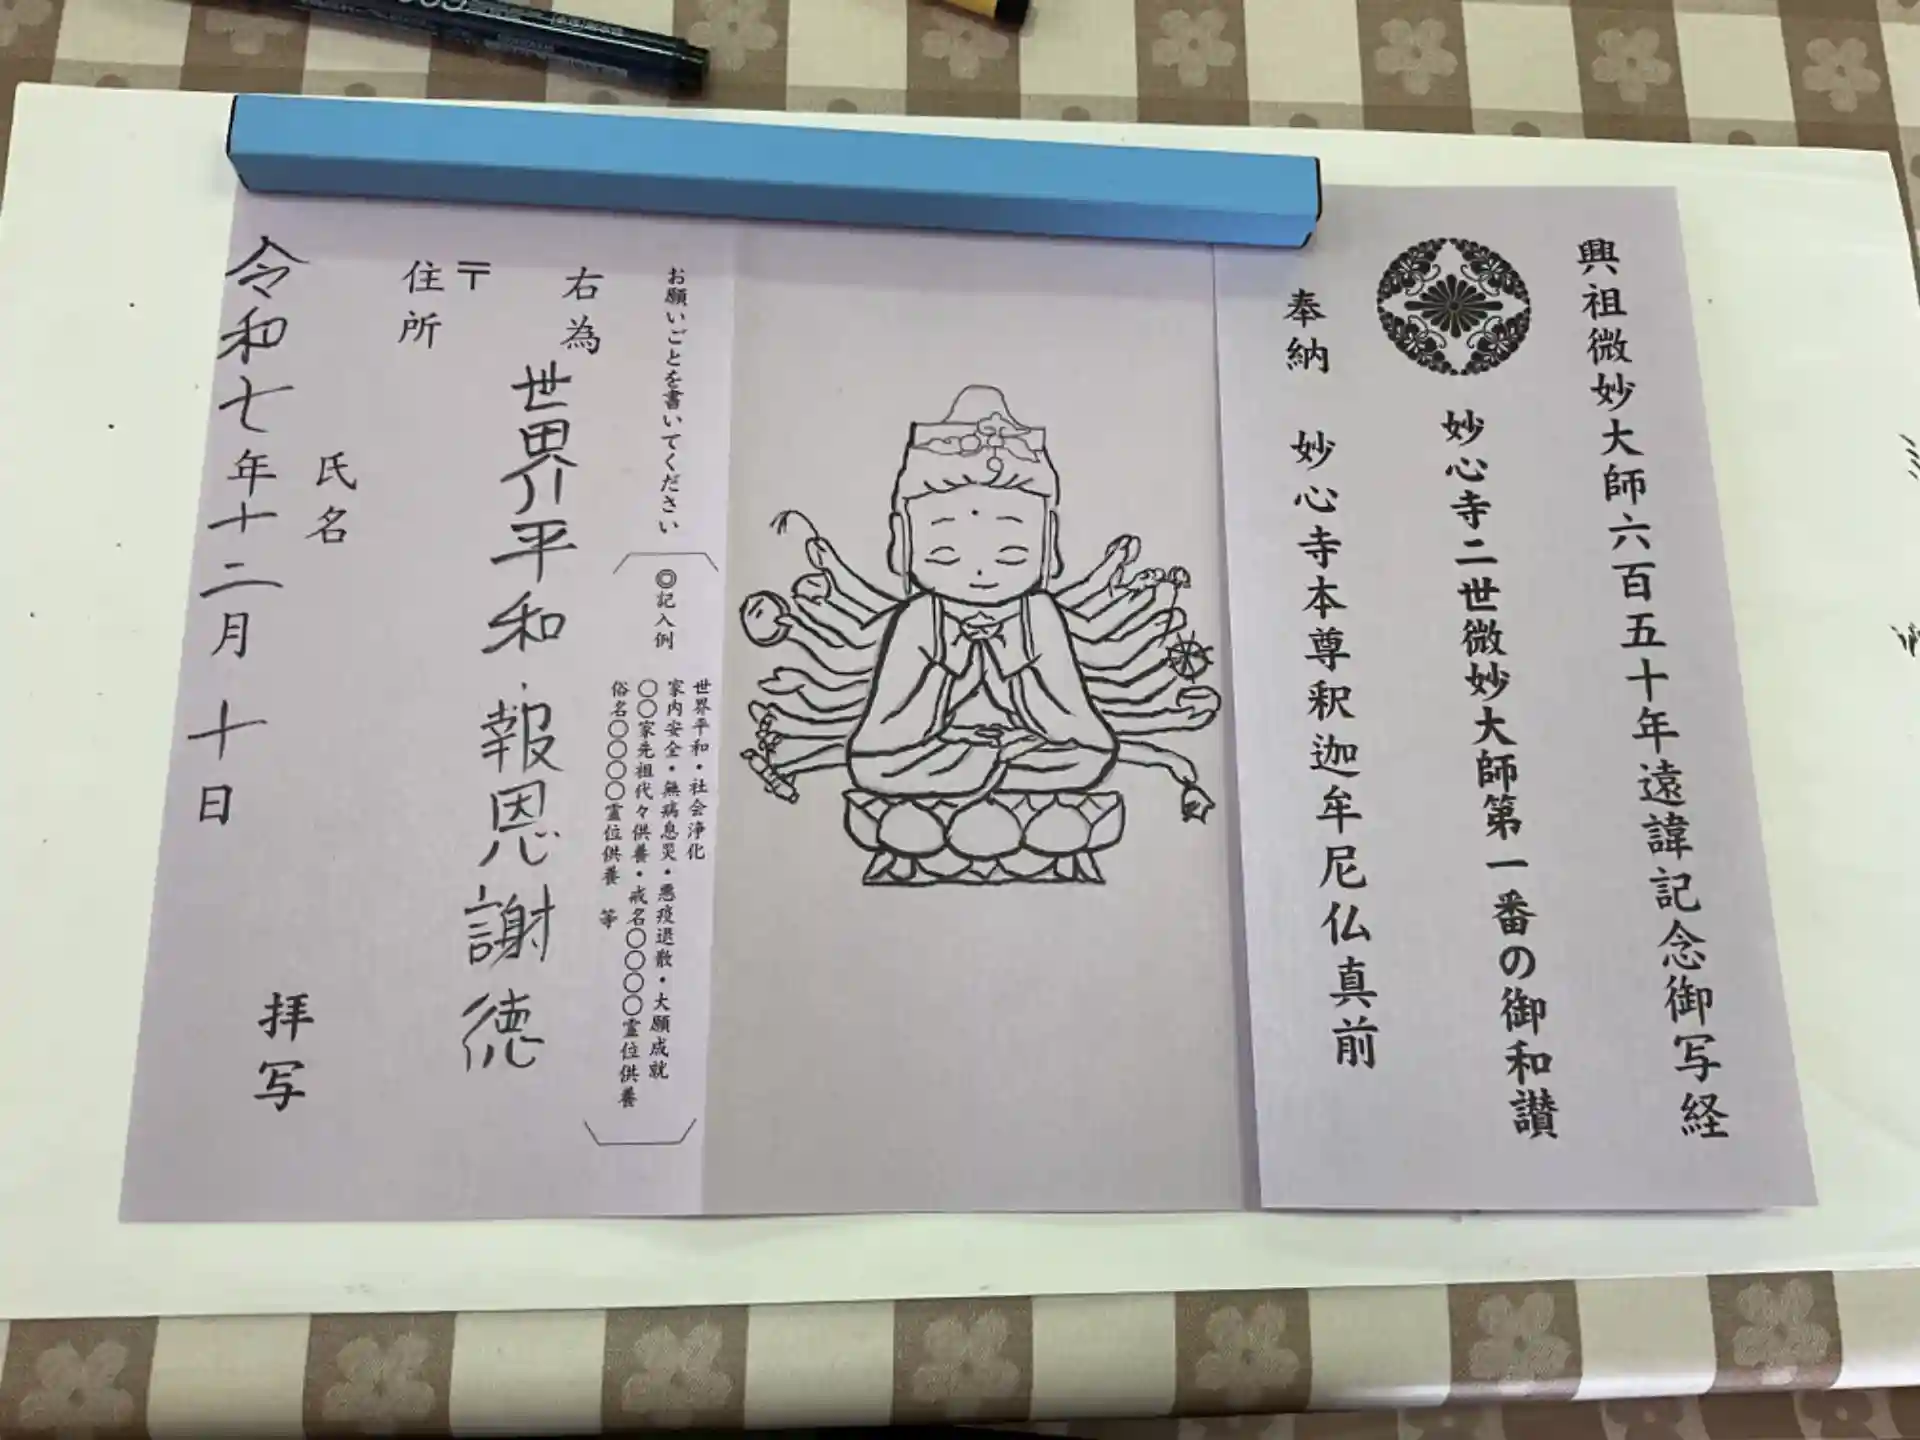 興祖微妙大師六百五十年遠諱記念御写経
妙心寺二世微妙大師第一番の御和讃
奉納 妙心寺本尊釈迦牟尼仏真前
お願いごとを書いてください
◎記入例
世界平和・社会浄化
家内安全・無病息災・悪疫退散・大願成就
〇〇家先祖代々供養・戒名〇〇〇〇霊位供養
俗名〇〇〇〇霊位供養 等
右為
世界平和・報恩謝徳
〒
住所
氏名
拝写
令和七年十二月十日